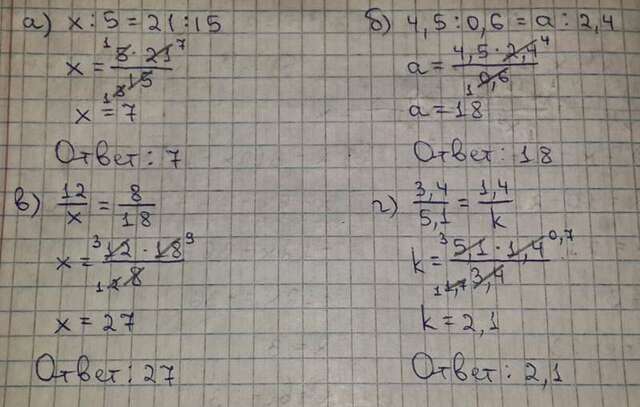 а) x : 5 = 21 : 15
x = 5 · 21 / 15
1 7 1 3
x = 7
Ответ: 7
б) 4,5 : 0,6 = a : 2,4
a = 4,5 · 2,4 / 0,6
4 1
a = 18
Ответ: 18
в) 12 / x = 8 / 18
x = 12 · 18 / 8
3 9 1 2
x = 27
Ответ: 27
г) 3,4 / 5,1 = 1,4 / k
k = 5,1 · 1,4 / 3,4
3 0,7 1 1,7
k = 2,1
Ответ: 2,1